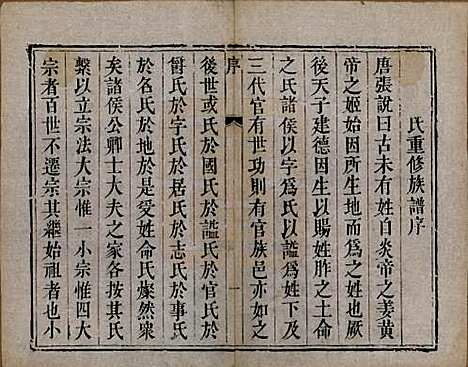 氏重修族譜序
唐張說曰古未有姓自炎帝之姜黃
帝之姬始因所生地而爲之姓厥
後天子建德因生以賜姓胙之土命
之氏諸侯以字爲氏以謚爲姓下及
三代官有世功則有官族邑亦如之
序
一
後世或氏於國氏於謚氏於官氏於
爵氏於字氏於居氏於志氏於事氏
於名氏於地於是受姓命氏燦然衆
矣諸侯公卿士大夫之家各按其氏
繫以立宗法大宗惟一小宗惟四大
宗者百世不遷宗其繼始祖者也小